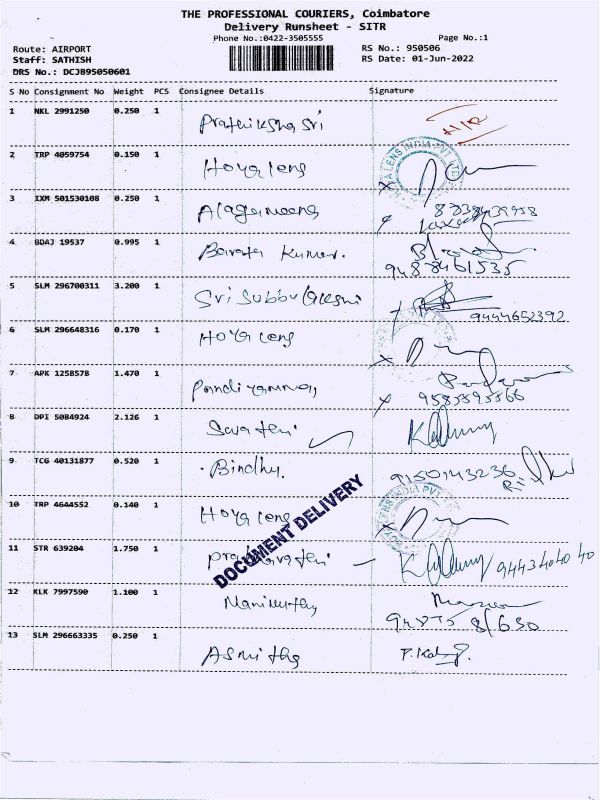 THE PROFESSIONAL COURIERS, Coimbatore
Delivery Runsheet - SITR
Phone No.:0422-3505555 Page No.:1
Route: AIRPORT RS No.: 950506
Staff: SATHISH RS Date: 01-Jun-2022
DRS No.: DCJB95050601
S No Consignment No Weight PCS Consignee Details Signature
1 NKL 2991250 0.250 1 Prathiksha sri
2 TRP 4059754 0.150 1 Hoya lens
3 IXM 501530108 0.250 1 Alagumeena 8838439958
4 BDAJ 19537 0.995 1 Barata Kumar.
9488461535
5 SLM 296700311 3.200 1 Sri Subbulakshmi 9444652392
6 SLM 296648316 0.170 1 Hoya lens
7 APK 1258578 1.470 1
9585595566
8 DPI 5084924 2.126 1
9 TCG 40131877 0.520 1 Bindhu. 9150143236
10 TRP 4644552 0.140 1 Hoya lens
DOCUMENT DELIVERY
11 STR 639204 1.750 1 9443404040
12 KLK 7997590 1.100 1
13 SLM 296663335 0.250 1 Asmitha